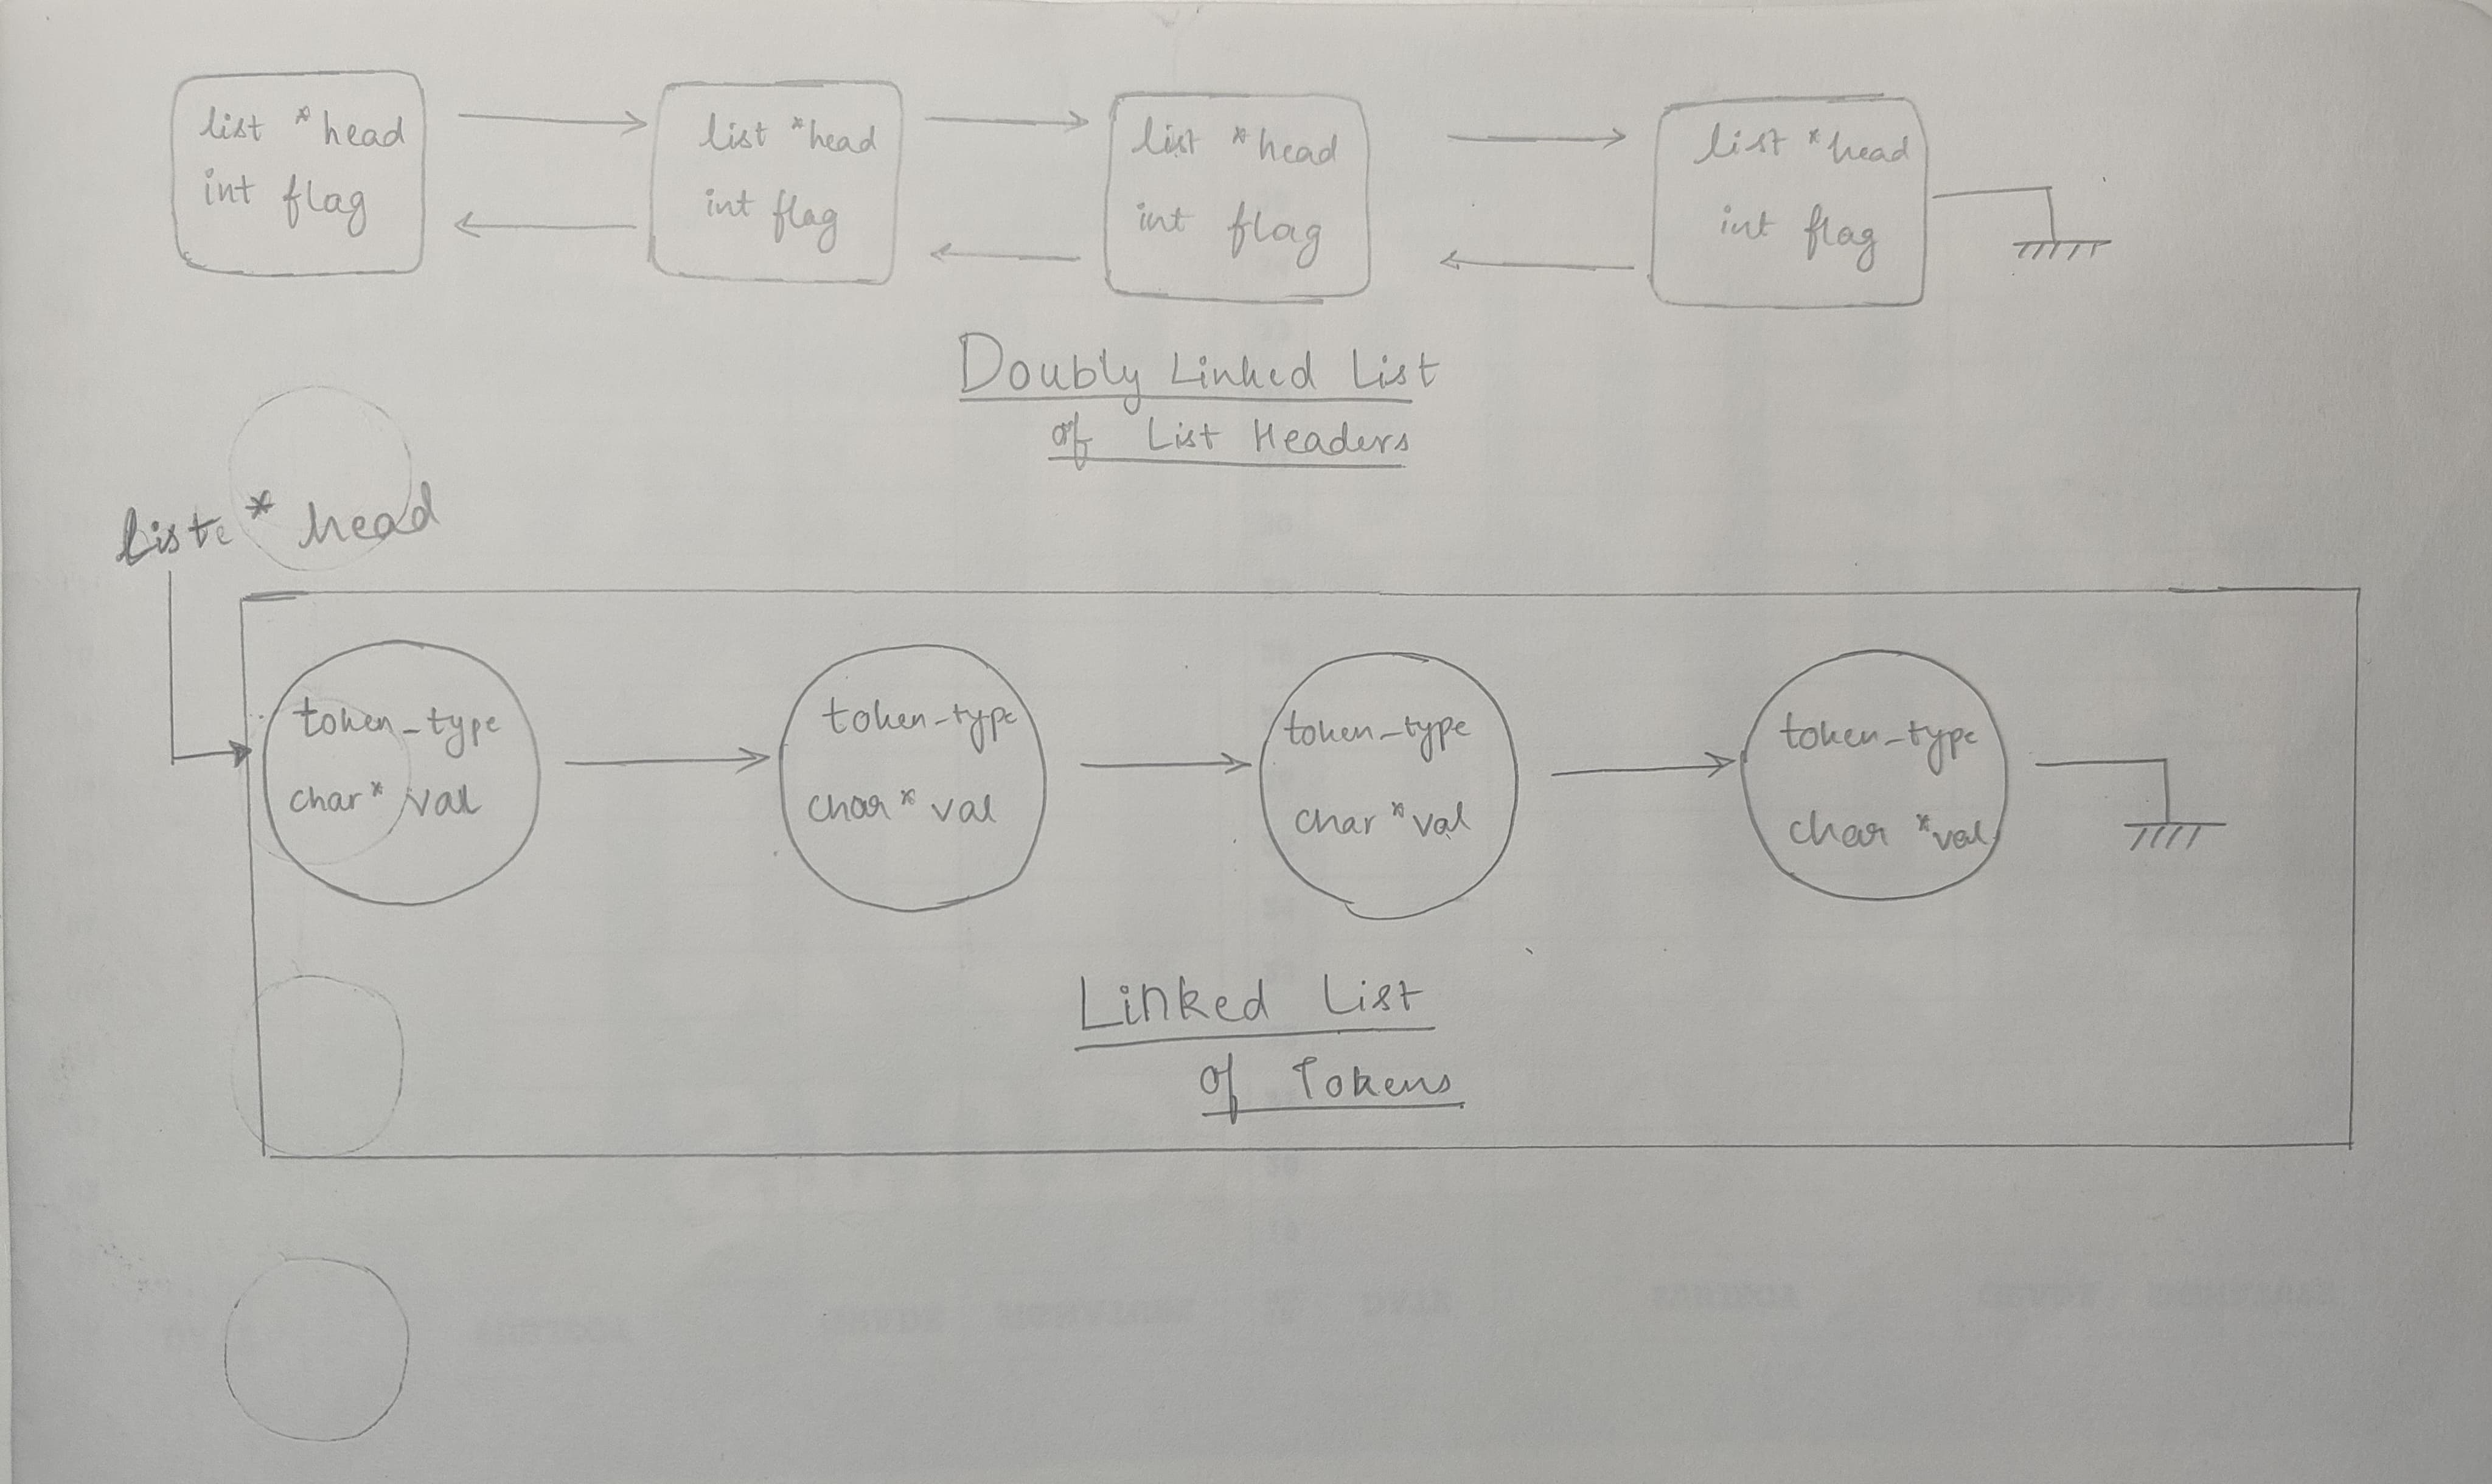 list *head
int flag
list *head
int flag
list *head
int flag
list *head
int flag
Doubly Linked List
of List Headers
* head
token_type
char* val
token-type
char* val
token-type
char *val
token-type
char *val
Linked List
of Tokens